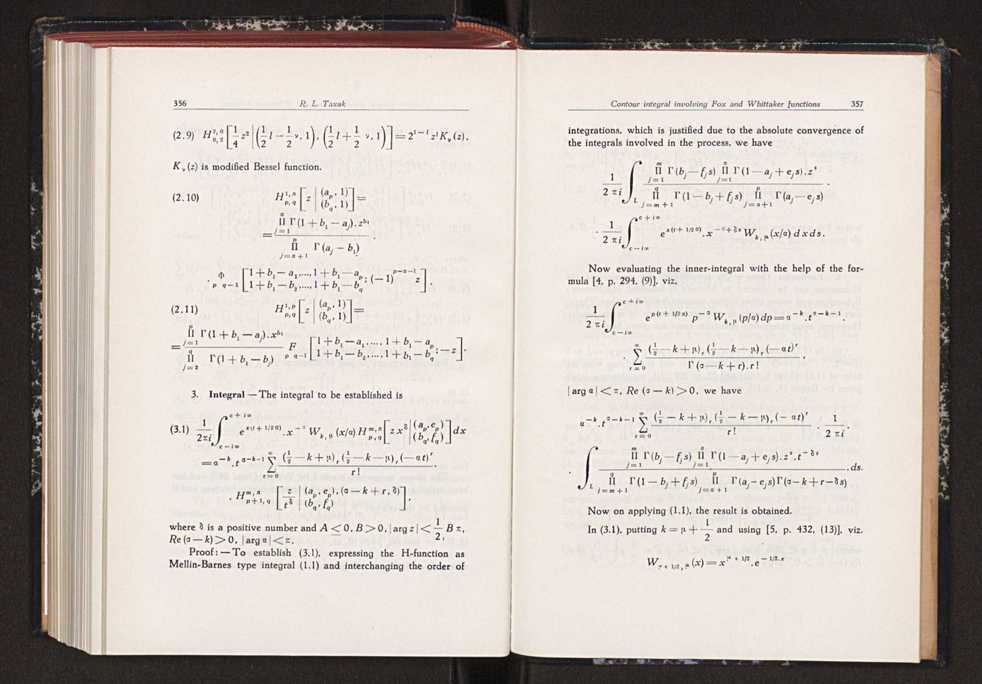 356 R. L. Taxak
(2.9) H^{2, 0}_{0, 2} [ 1/4 z² | (1/2 l − 1/2 ν, 1), (1/2 l + 1/2 ν, 1) ] = 2^{1−l} z^l K_ν (z).
K_ν (z) is modified Bessel function.
(2.10) H^{1, n}_{p, q} [ z | (a_p, 1) / (b_q, 1) ] =
= ∏_{j=1}^{n} Γ (1 + b_1 − a_j). z^{b_1} / ∏_{j=n+1}^{p} Γ (a_j − b_1) .
. _pΦ_{q−1} [ 1 + b_1 − a_1,..., 1 + b_1 − a_p / 1 + b_1 − b_2,..., 1 + b_1 − b_q ; (−1)^{p−n−1} z ] .
(2.11) H^{1, p}_{p, q} [ z | (a_p, 1) / (b_q, 1) ] =
= ∏_{j=1}^{p} Γ (1 + b_1 − a_j). x^{b_1} / ∏_{j=2}^{q} Γ (1 + b_1 − b_j) _pF_{q−1} [ 1 + b_1 − a_1,..., 1 + b_1 − a_p / 1 + b_1 − b_2,..., 1 + b_1 − b_q ; −z ].
3. Integral — The integral to be established is
(3.1) 1/2πi ∫_{c−i∞}^{c+i∞} e^{x(t + 1/2 α)} . x^{−σ} W_{k, μ} (x/α) H^{m, n}_{p, q} [ z x^δ | (a_p, e_p) / (b_q, f_q) ] dx
= α^{−k} . t^{σ−k−1} ∑_{r=0}^{∞} (1/2 − k + μ)_r (1/2 − k − μ)_r (− α t)^r / r! .
. H^{m, n}_{p+1, q} [ z / t^δ | (a_p, e_p), (σ − k + r, δ) / (b_q, f_q) ] .
where δ is a positive number and A ≤ 0, B > 0, | arg z | < 1/2 B π,
Re (σ − k) > 0, | arg α | < π.
Proof: — To establish (3.1), expressing the H-function as
Mellin-Barnes type integral (1.1) and interchanging the order of
Contour integral involving Fox and Whittaker functions 357
integrations, which is justified due to the absolute convergence of
the integrals involved in the process, we have
1/2πi ∫_L ∏_{j=1}^{m} Γ (b_j − f_j s) ∏_{j=1}^{n} Γ (1 − a_j + e_j s). z^s / ∏_{j=m+1}^{q} Γ (1 − b_j + f_j s) ∏_{j=n+1}^{p} Γ (a_j − e_j s) .
. 1/2πi ∫_{c−i∞}^{c+i∞} e^{x(t + 1/2 α)} . x^{−σ + δs} W_{k, μ} (x/α) d x d s.
Now evaluating the inner-integral with the help of the for-
mula [4, p. 294, (9)], viz.
1/2πi ∫_{c−i∞}^{c+i∞} e^{p(t + 1/2 α)} p^{−σ} W_{k, μ} (p/α) dp = α^{−k} . t^{σ−k−1} .
. ∑_{r=0}^{∞} (1/2 − k + μ)_r (1/2 − k − μ)_r (− α t)^r / Γ (σ − k + r). r! .
| arg α | < π, Re (σ − k) > 0, we have
α^{−k} . t^{σ−k−1} ∑_{r=0}^{∞} (1/2 − k + μ)_r (1/2 − k − μ)_r (− αt)^r / r! . 1/2πi .
. ∫_L ∏_{j=1}^{m} Γ (b_j − f_j s) ∏_{j=1}^{n} Γ (1 − a_j + e_j s). z^s . t^{−δs} / ∏_{j=m+1}^{q} Γ (1 − b_j + f_j s) ∏_{j=n+1}^{p} Γ (a_j − e_j s) Γ (σ − k + r − δ s) . ds.
Now on applying (1.1), the result is obtained.
In (3.1), putting k = μ + 1/2 and using [5, p. 432, (13)], viz.
W_{μ + 1/2, μ} (x) = x^{μ + 1/2} . e^{− 1/2 . x}